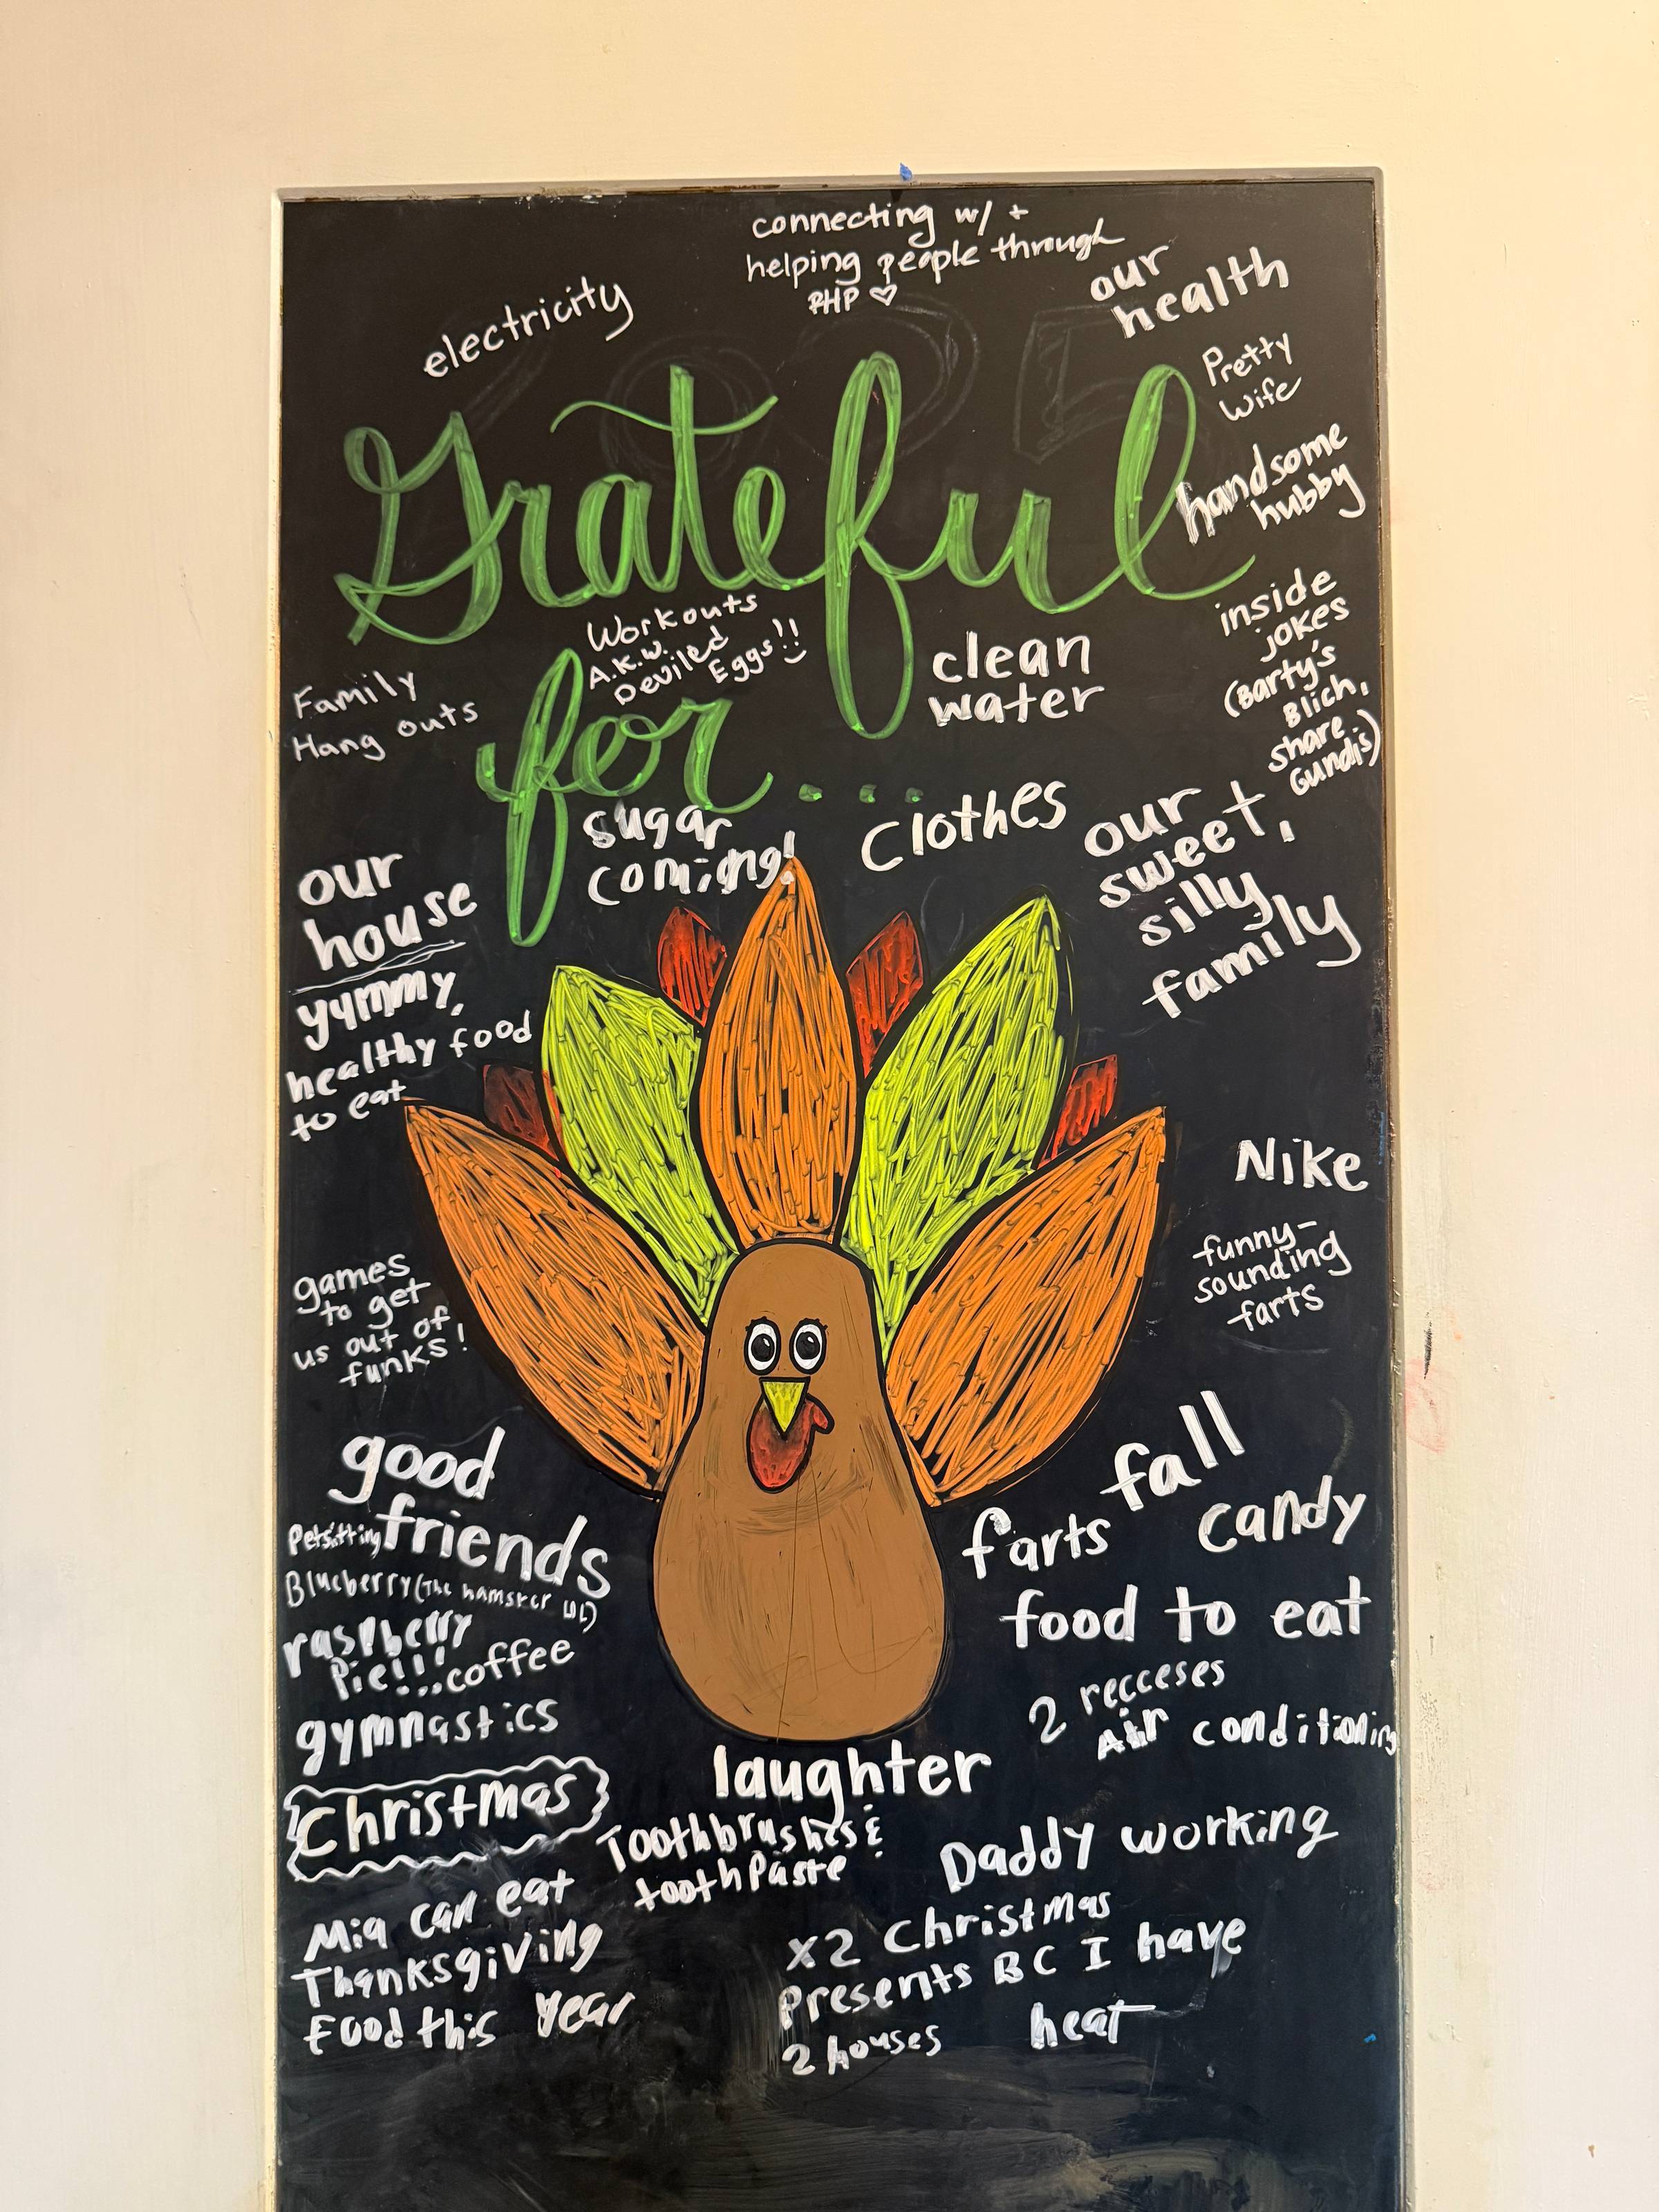 connecting w/ +
helping people through
RHP ♡
electricity
our
health
Pretty
Wife
Grateful
for....
handsome
hubby
Workouts
A.K.W.
Deviled
Eggs!!
clean
water
inside
jokes
(Barty's
Blich,
share
Gundis)
Family
Hang outs
sugar
coming!
Clothes
our
sweet,
silly
family
our
house
yummy,
healthy food
to eat
Nike
funny-
sounding
farts
games
to get
us out of
funks!
good
friends
fall
farts
Candy
Petsitting
Blueberry (The hamster
raspberry
Pie!!!
...coffee
food to eat
gymnastics
2 recceses
Air conditioning
Christmas
laughter
Toothbrushes &
toothpaste
Daddy working
Mia can eat
Thanksgiving
Food this year
x2 Christmas
Presents BC I have
2 houses
heat